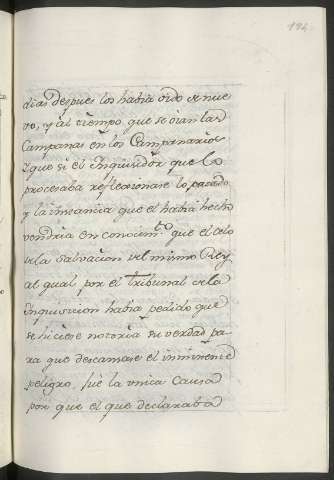 194
dias despues los habia oido de nue
vo, y al tiempo que se oian las
Campanas en los Campanarios.
Y que si el Inquisidor que lo
procesaba reflexionase lo pasado
y la instancia que el habia hecho
vendria en conocim.to que el celo
de la Salvacion del mismo Rey
al qual por el Tribunal de la
Inquisicion habia pedido que
se hiciese notoria su verdad pa-
ra que descamase el inminente
peligro, fue la unica Causa
por que el que declaraba